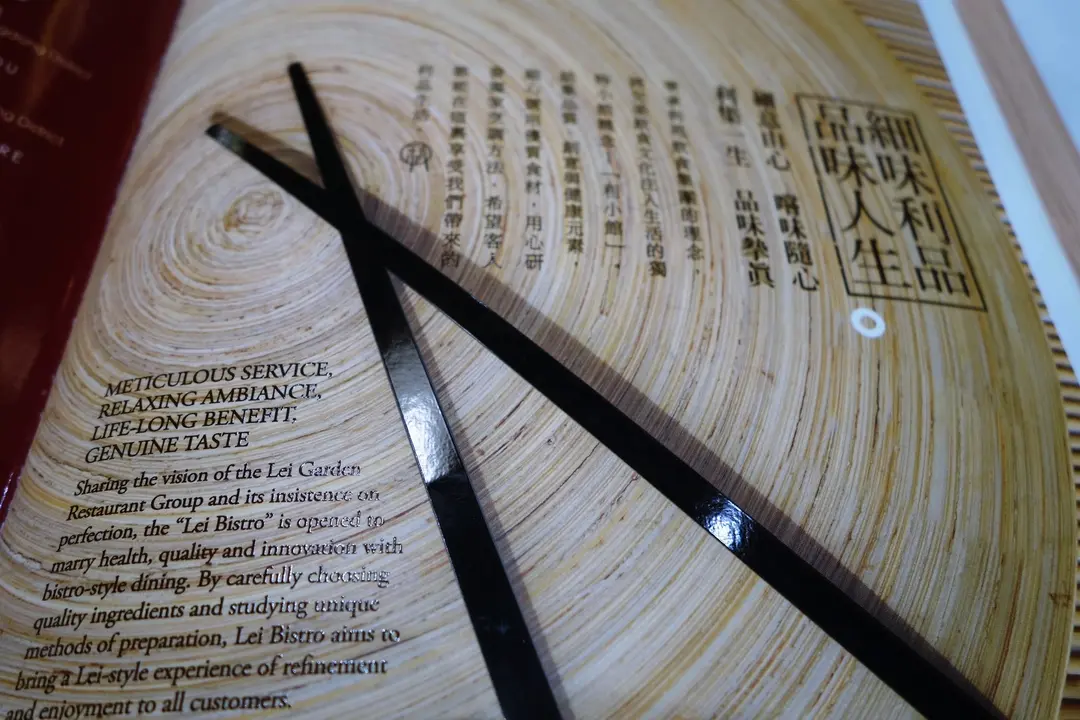 細味利品
品味人生
意由心 味隨心
一生 品味摯真
飲食集團的理念，
飲食文化注入生活的獨
小館概念—「利小館」，
品質、創意與健康元素，
優質食材，用心研
獨家烹調方法，希望客人
都能在這裏享受我們帶來的
METICULOUS SERVICE,
RELAXING AMBIANCE,
LIFE-LONG BENEFIT,
GENUINE TASTE
Sharing the vision of the Lei Garden
Restaurant Group and its insistence on
perfection, the “Lei Bistro” is opened to
marry health, quality and innovation with
bistro-style dining. By carefully choosing
quality ingredients and studying unique
methods of preparation, Lei Bistro aims to
bring a Lei-style experience of refinement
and enjoyment to all customers.